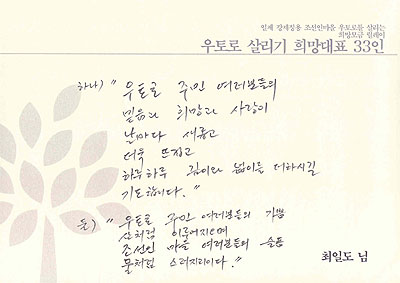 일제 강제징용 조선인마을 우토로를 살리는
희망모금 릴레이
우토로 살리기 희망대표 33인
하나) " 우토로 주민 여러분들의
믿음과 희망과 사랑이
날마다 새롭고
더욱 뜨겁고
하루하루 깊이와 넓이를 더하시길
기도합니다. "
둘) " 우토로 주민 여러분들의 기쁨
산처럼 이루어지으며
조선인 마을 여러분들의 슬픔
물처럼 스러지리이다. "
최일도 님